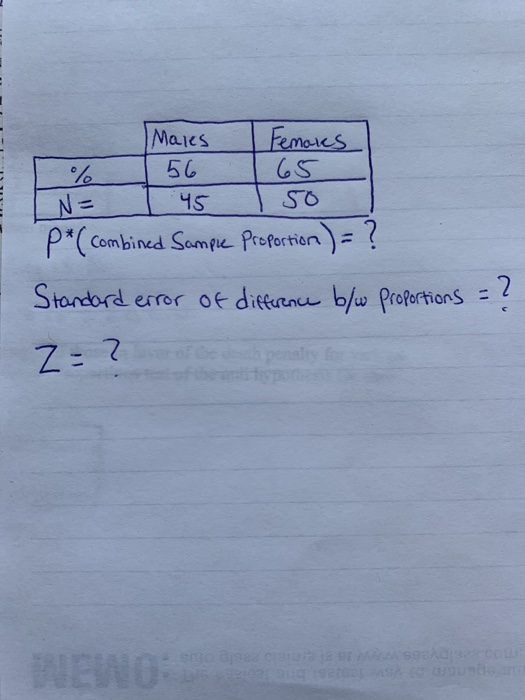 Males Females
% 56 65
N= 45 50
P* (combined Sample Proportion) = ?
Standard error of difference b/w proportions = ?
Z = ?
MEMO: